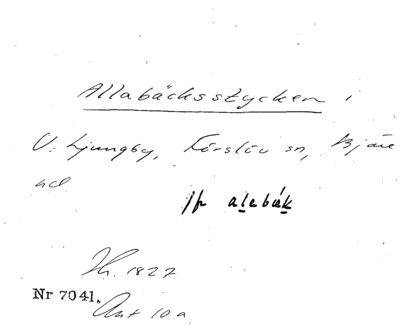 Allabäcksstycken,
V. Ljungby, Förslöv sn, Bjäre
hd
jfr alebäk
Sk. 1827
Nr 7041.
Akt 10a